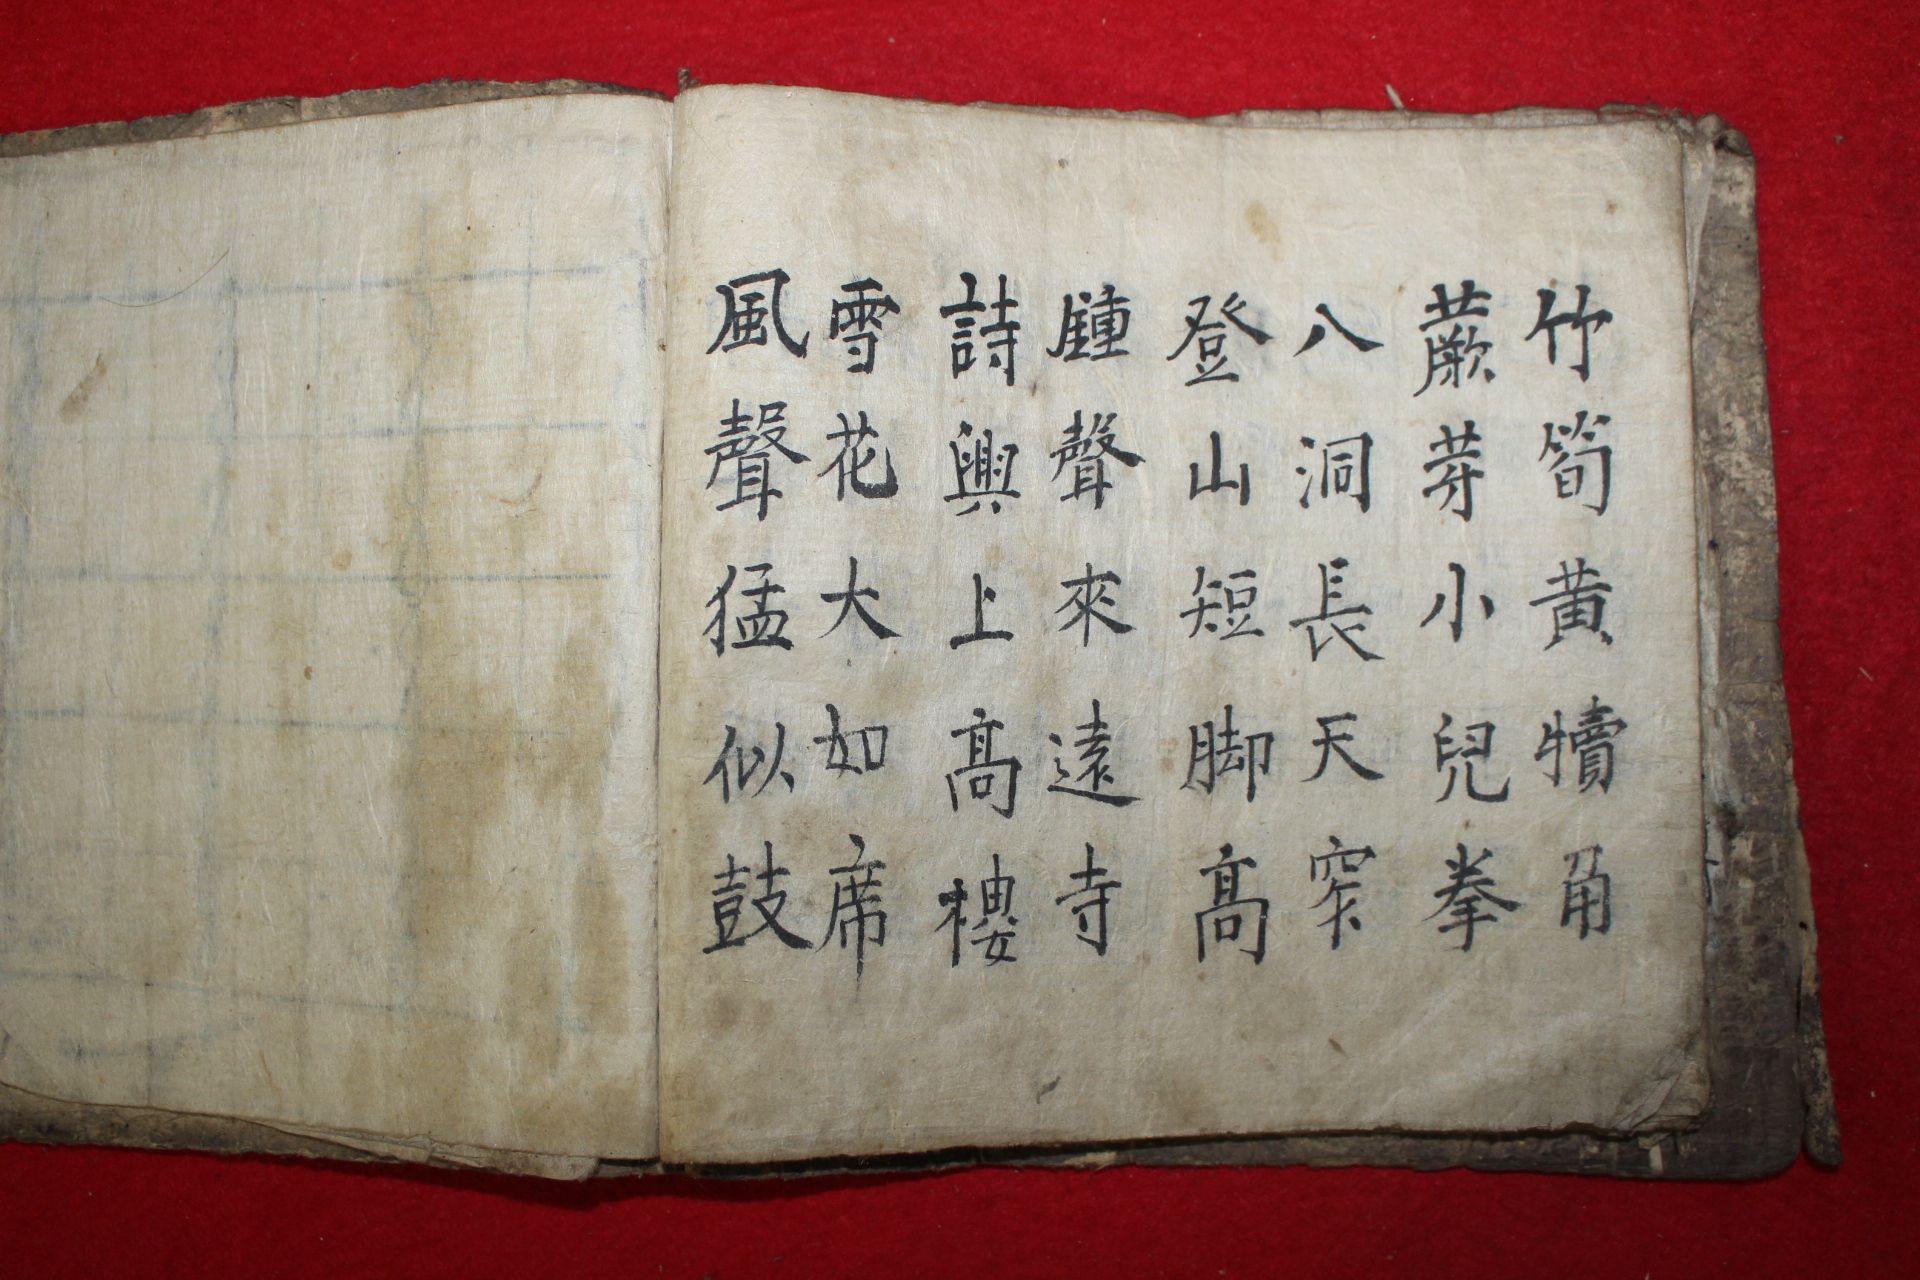 竹筍黄犢角
蕨芽小兒拳
八洞長天窄
登山短脚髙
鍾聲來遠寺
詩興上髙樓
雪花大如席
風聲猛似鼓